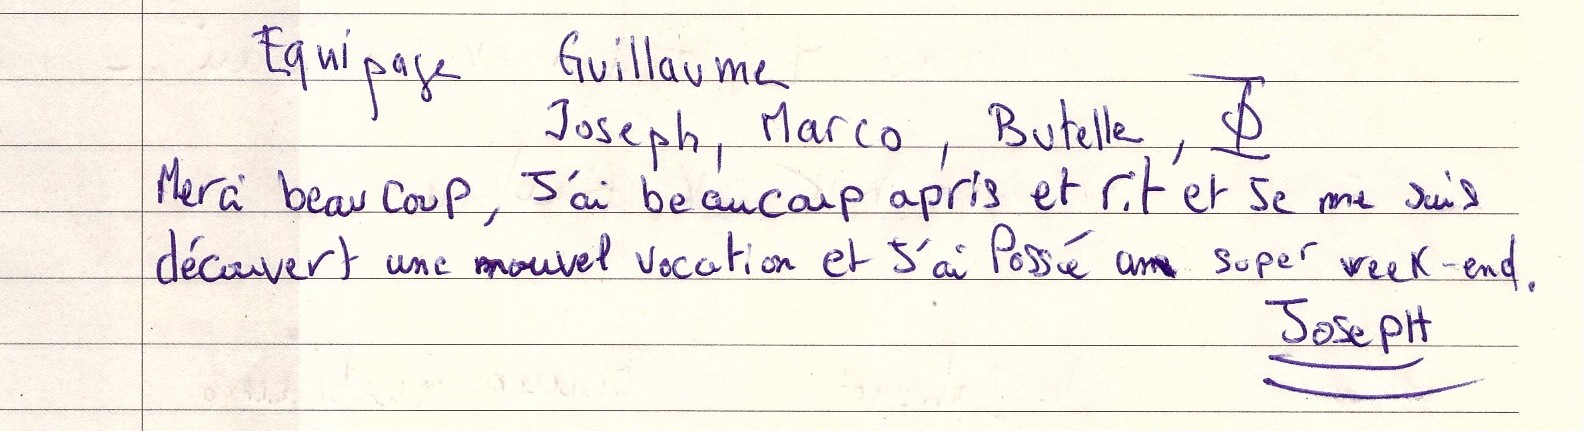 Equipage Guillaume
Joseph, Marco, Butelle,
Merci beaucoup, J'ai beaucoup apris et rit et Je me suis
découvert une nouvel vocation et J'ai Passé un super week-end.
JosepH